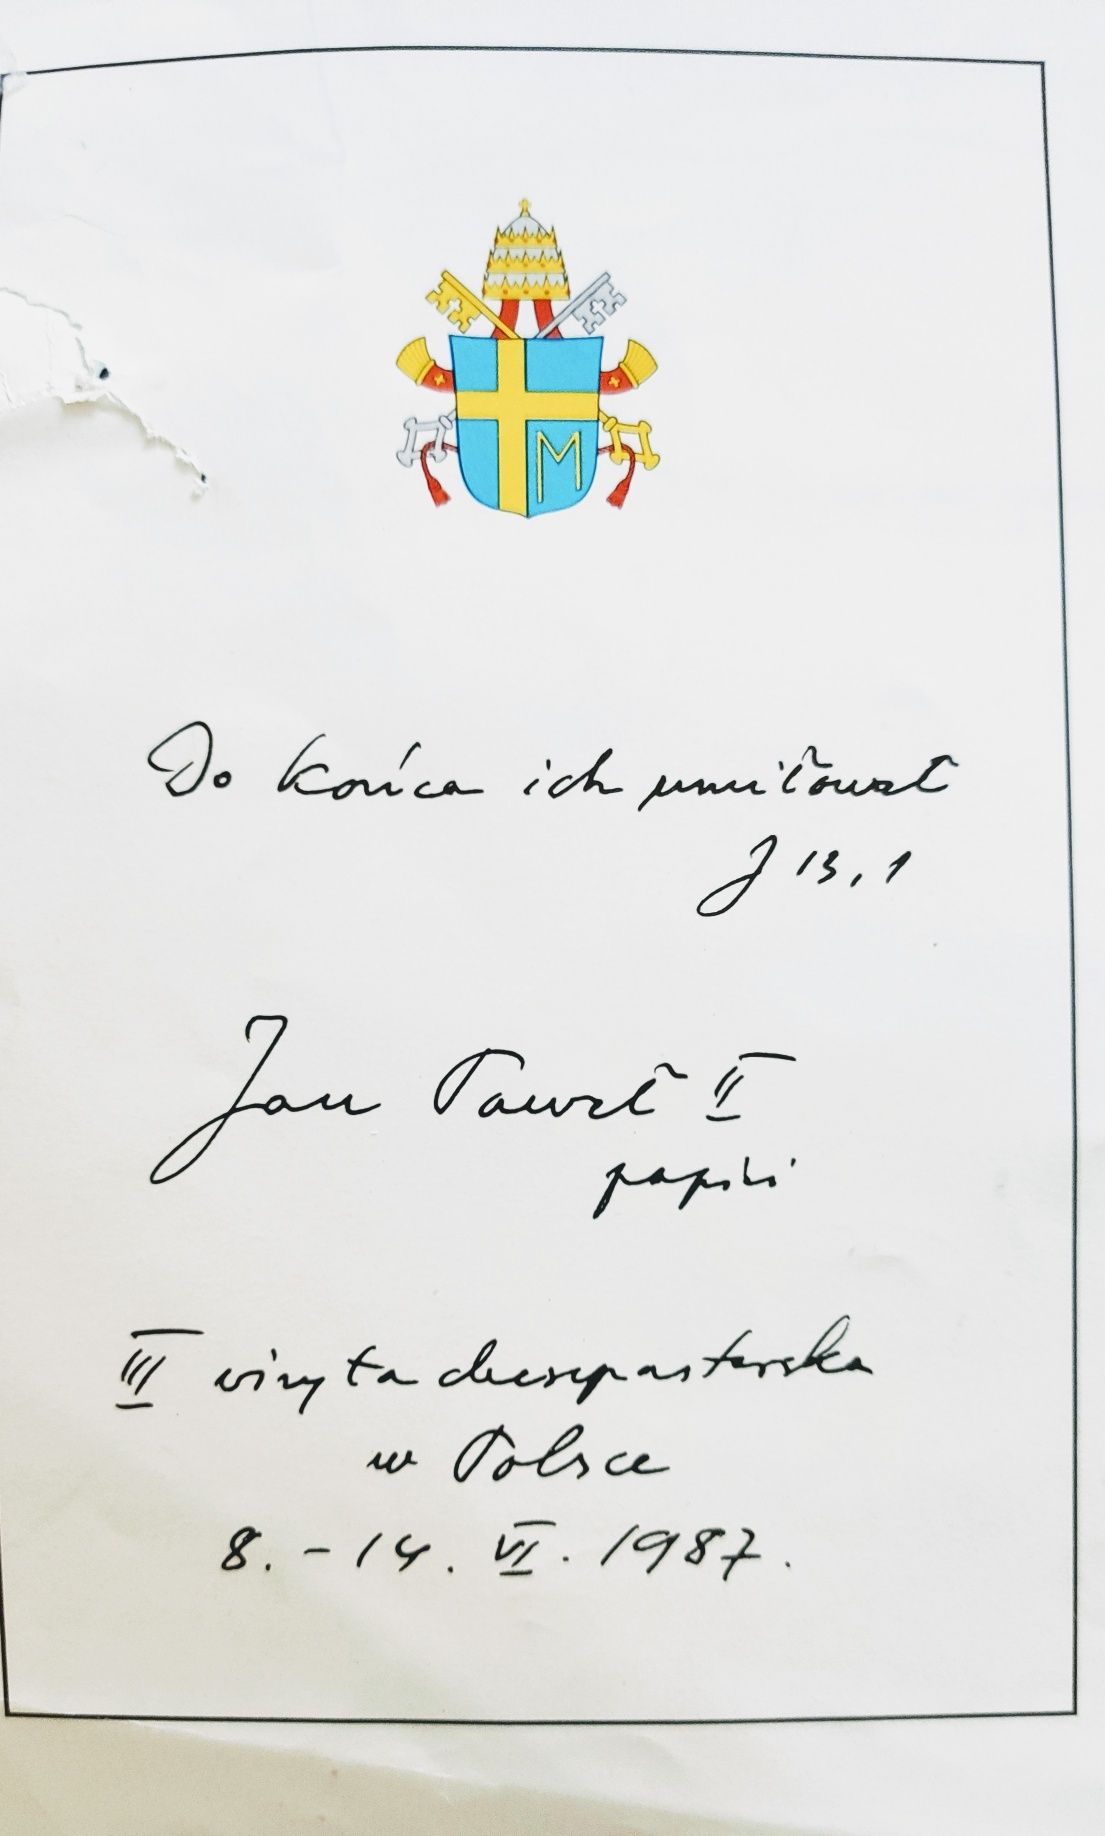 M
Do końca ich umiłował
J 13, 1
Jan Paweł II
papież
III wizyta duszpasterska
w Polsce
8. - 14. VI. 1987.